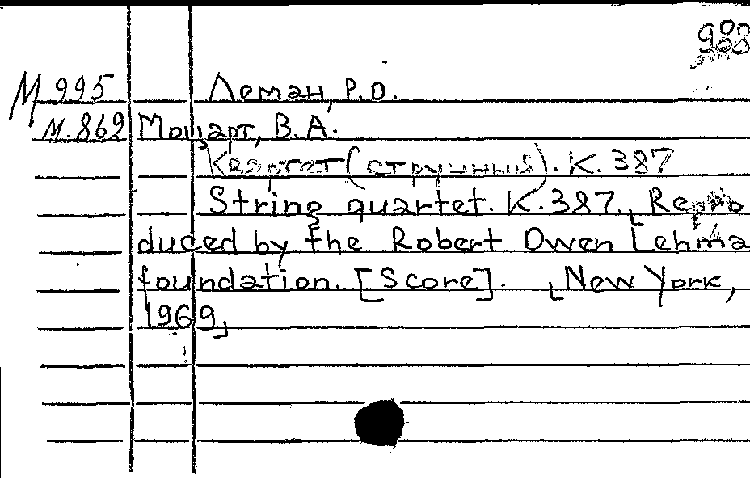 988
М 995 Леман, Р.О.
М.869 Моцарт, В.А.
Квартет (струнный). К. 387
String quartet. K.387. [Repro
duced by the Robert Owen Lehma
foundation. [Score]. [New York,
1969]